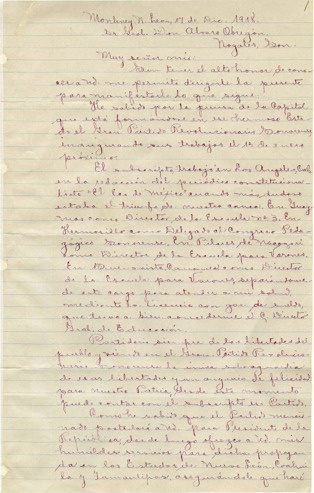 1
Monterrey N. León, 17 de Dic. 1918.
Sr. Gral. Don Alvaro Obregón
Nogales, Son.
Muy señor mío:
Sin tener el alto honor de cono-
cer a Ud. me permito dirigirle la presente
para manifestarle lo que sigue:
He sabido por la prensa de la Capital
que está formándose en ese hermoso Esta-
do el Gran Partido Revolucionario Sonorense
inaugurando sus trabajos el 1º de enero
próximo.
El subscripto trabajó en Los Angeles, Cal.
en la redacción del periódico constituciona-
lista "El Eco de México" cuando más dudoso
estaba el triunfo de nuestra causa. En Guay-
mas como Director de la Escuela Nº 3. En
Hermosillo como Delegado al Congreso Peda-
gógico Sonorense. En Pilares de Nacozari
como Director de la Escuela para Varones.
En Buenavista, Cananea como Director
de la Escuela para Varones separándome
de este cargo para atender a mi salud
mediante la licencia con goce de sueldo,
que tuvo a bien concederme el C. Director
Gral. de Educación.
Partidario siempre de las libertades del
pueblo y viendo en el Gran Partido Revolucio-
nario Sonorense la única salvaguardia
de esas libertades y un augurio de felicidad
para nuestra Patria, desde este momento
puede contar con el subscripto su Partido.
Como he sabido que el Partido mencio-
nado postulará a Ud. para Presidente de la
República, desde luego ofrezco a Ud. mis
humildes servicios para dicha propagan-
da en los Estados de Nuevo León, Coahui-
la y Tamaulipas, asegurándole que haré